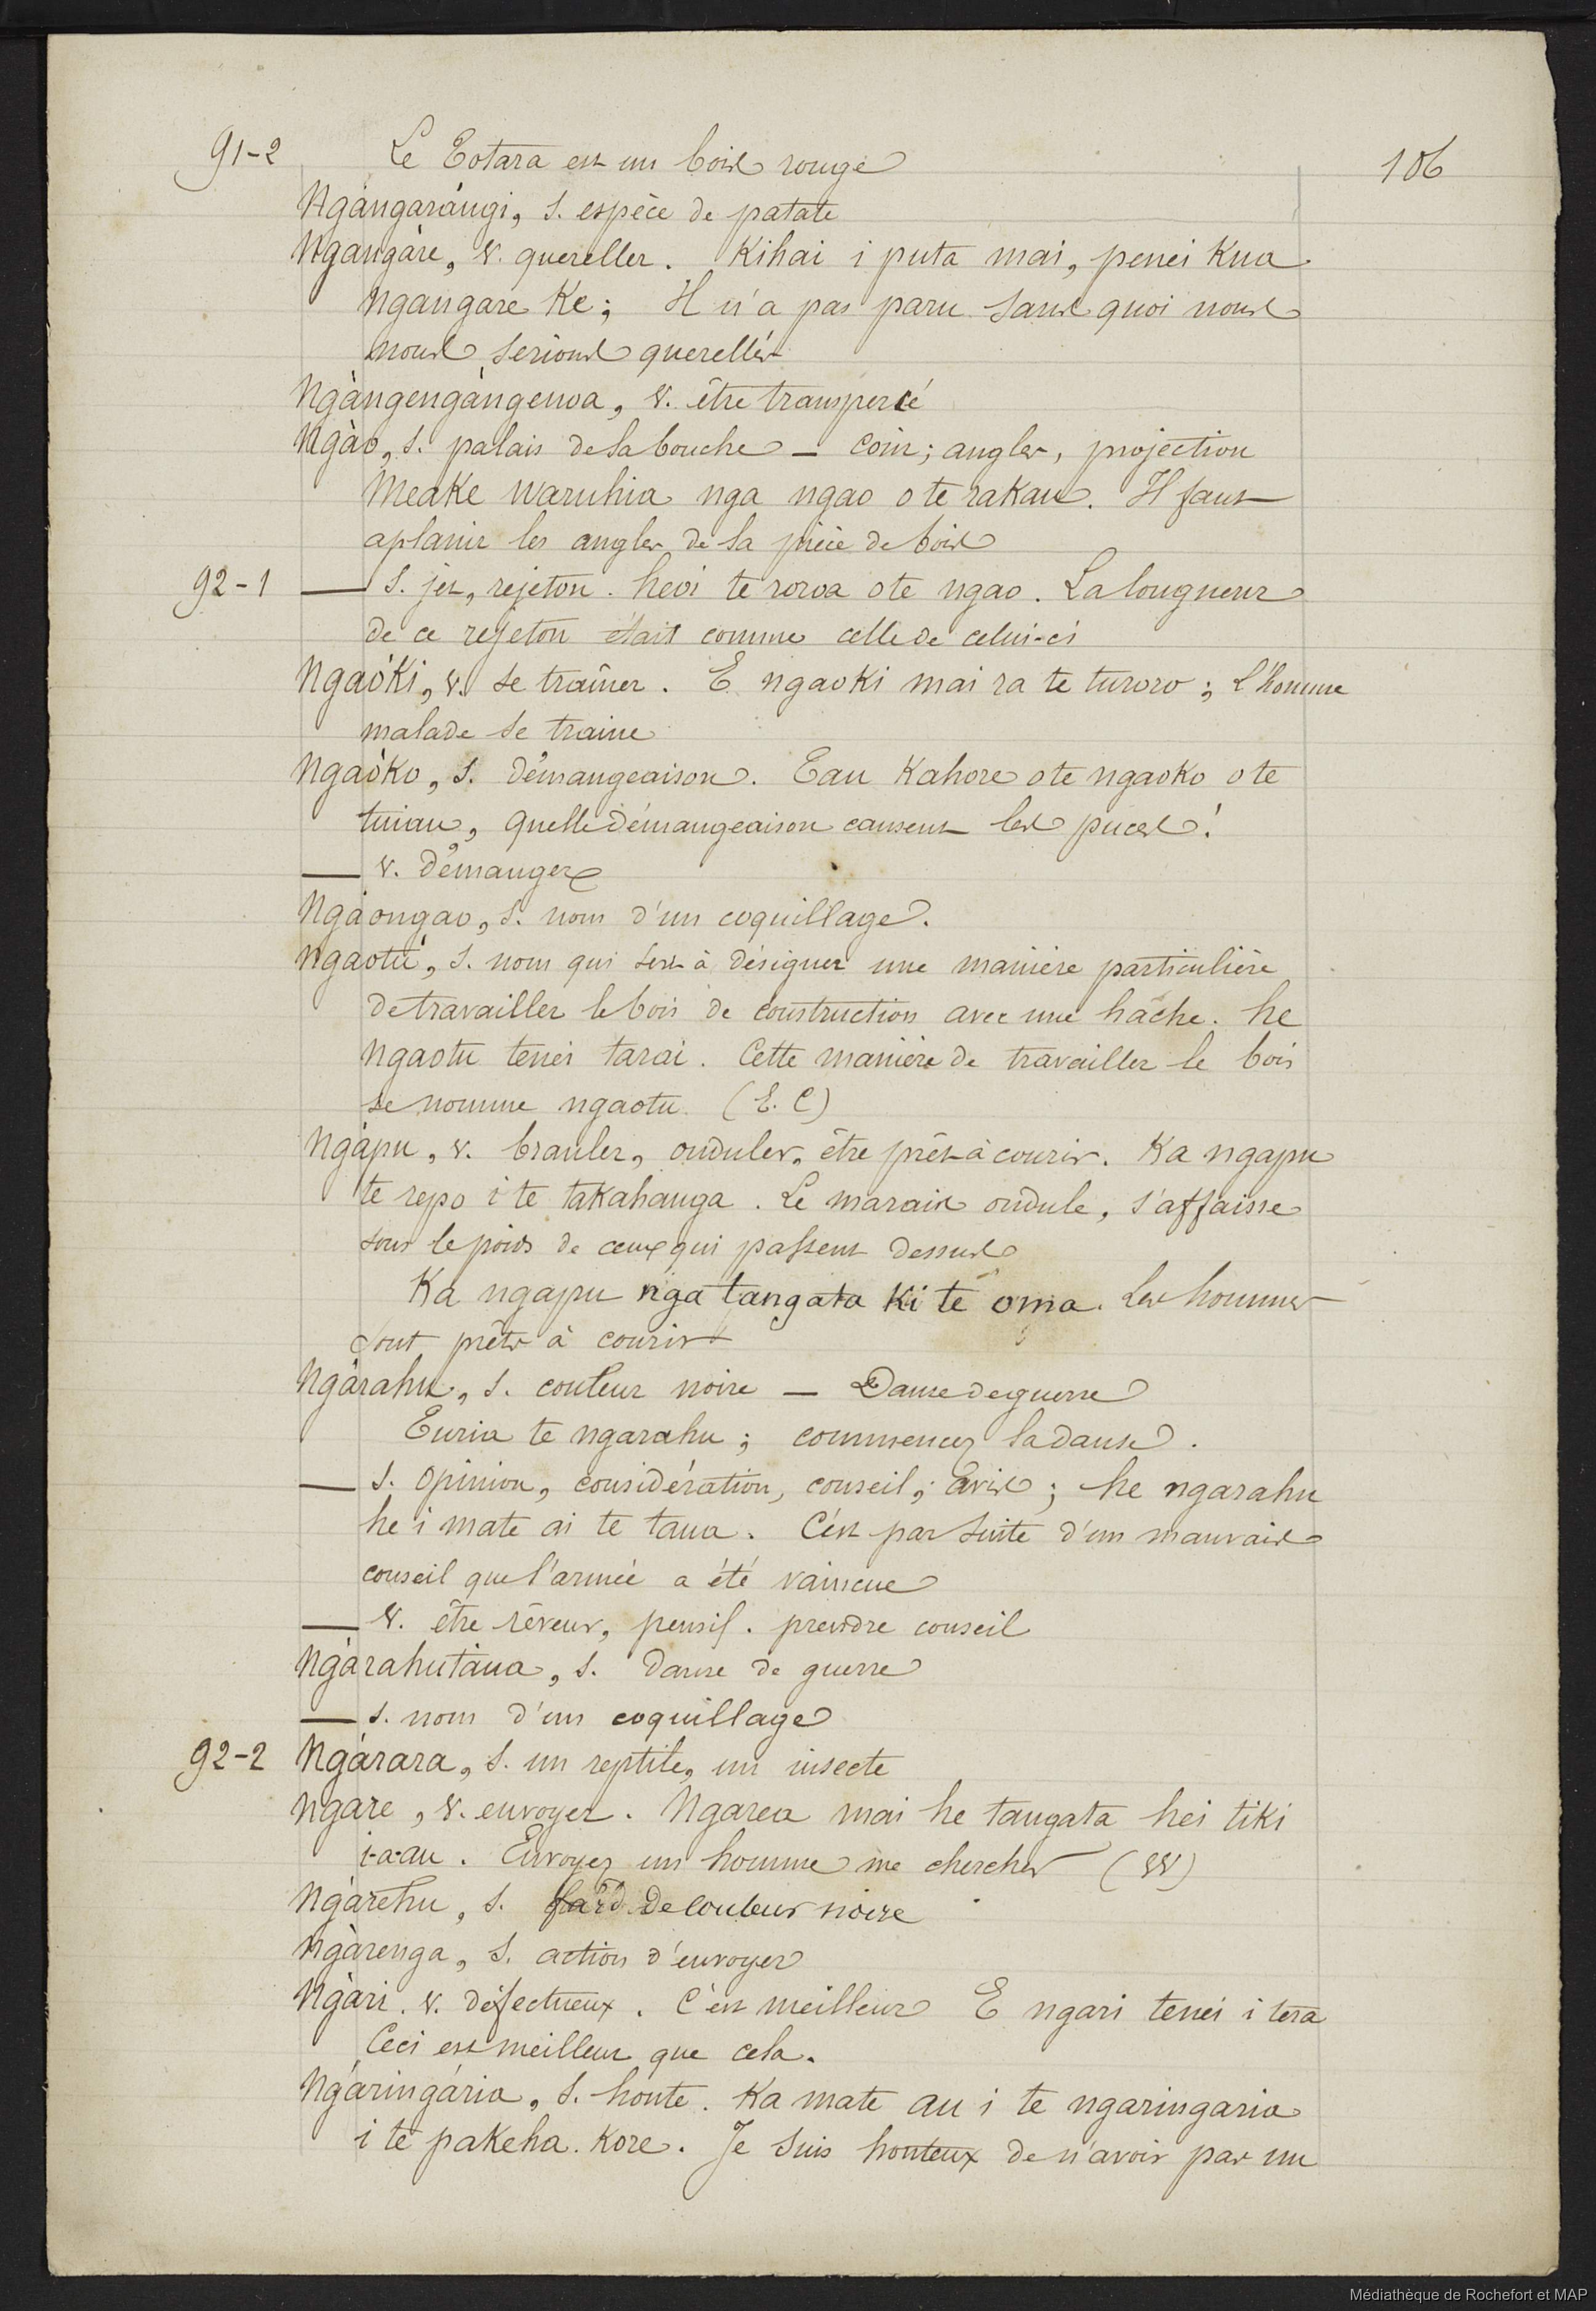 91-2 Le Totara est un bois rouge 106
Ngàngaràngi, s. espèce de patate
Ngangàre, v. quereller. Kihai i puta mai, penei kua
ngangare ke; Il n'a pas paru sans quoi nous
nous serions querellés
Ngàngengàngenoa, v. être transpercé
Ngào, s. palais de la bouche — coin; angles, projection
Meake waruhia nga ngao o te rakau. Il faut
aplanir les angles de la pièce de bois
92-1 — s. jet, rejeton. heoi te roroa o te ngao. La longueur
de ce rejeton était comme celle de celui-ci
Ngaòki, v. se traîner. E ngaoki mai ra te turoro; L'homme
malade se traine
Ngaòko, s. démangeaison. Eau kahore o te ngaoko o te
tuiau, quelle démangeaison causent les puces!
— v. démanger
Ngàongao, s. nom d'un coquillage.
Ngaotù, s. nom qui sert à désigner une manière particulière
de travailler le bois de construction avec une hâche. he
ngaotu tenei tarai. Cette manière de travailler le bois
se nomme ngaotu (E. C)
Ngàpu, v. branler, onduler, être prêt à courir. Ka ngapu
te repo i te takahanga. Le marais ondule, s'affaisse
sous le poids de ceux qui passent dessus
Ka ngapu nga tangata ki te oma. Les hommes
sont prêts à courir
Ngàrahu, s. couleur noire — Danse de guerre
Turia te ngarahu; commencez la danse.
— s. opinion, considération, conseil, avis; he ngarahu
he i mate ai te taua. C'est par suite d'un mauvais
conseil que l'armée a été vaincue
— v. être rêveur, pensif. prendre conseil
Ngàrahutàua, s. danse de guerre
— s. nom d'un coquillage
92-2 Ngàrara, s. un reptile, un insecte
Ngare, v. envoyer. Ngarea mai he tangata hei tiki
i-a-au. Envoyez un homme me chercher (W)
Ngàrehu, s. fard de couleur noire
Ngàrenga, s. action d'envoyer
Ngàri. v. défectueux. C'est meilleur E ngari tenei i tera
Ceci est meilleur que cela.
Ngàringària, s. honte. Ka mate au i te ngaringaria
i te pakeha. Kore. Je suis honteux de n'avoir pas un
Médiathèque de Rochefort et MAP